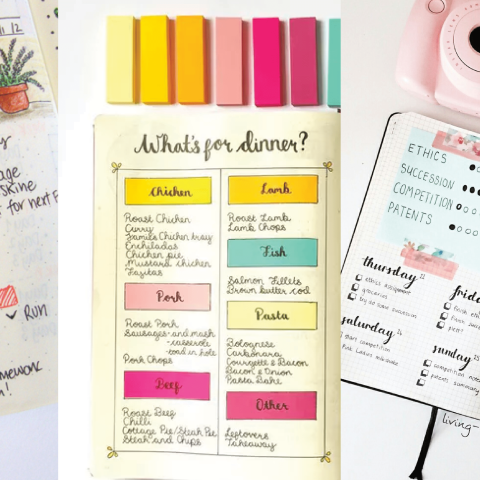 12
y
age
skine
for next F
RUN
mework
!
What's for dinner?
Chicken
Roast Chicken
Curry
Jamies Chicken tray
Enchiladas
Chicken pie
Mustard chicken
Fajitas
Pork
Roast Pork
Sausages - and mash
- casserole
- toad in hole
Pork Chops
Beef
Roast Beef
Chilli
Cottage Pie/Steak Pie
Steak and Chips
Lamb
Roast Lamb
Lamb Chops
Fish
Salmon Fillets
Brown butter cod
Pasta
Bolognese
Carbonara
Courgette & Bacon
Bacon & Onion
Pasta Bake
Other
Leftovers
Takeaway
ETHICS
SUCCESSION
COMPETITION
PATENTS
thursday
ethics assignment
groceries
friday
saturday
start competition
sunday
competition notes
patents summary
living-